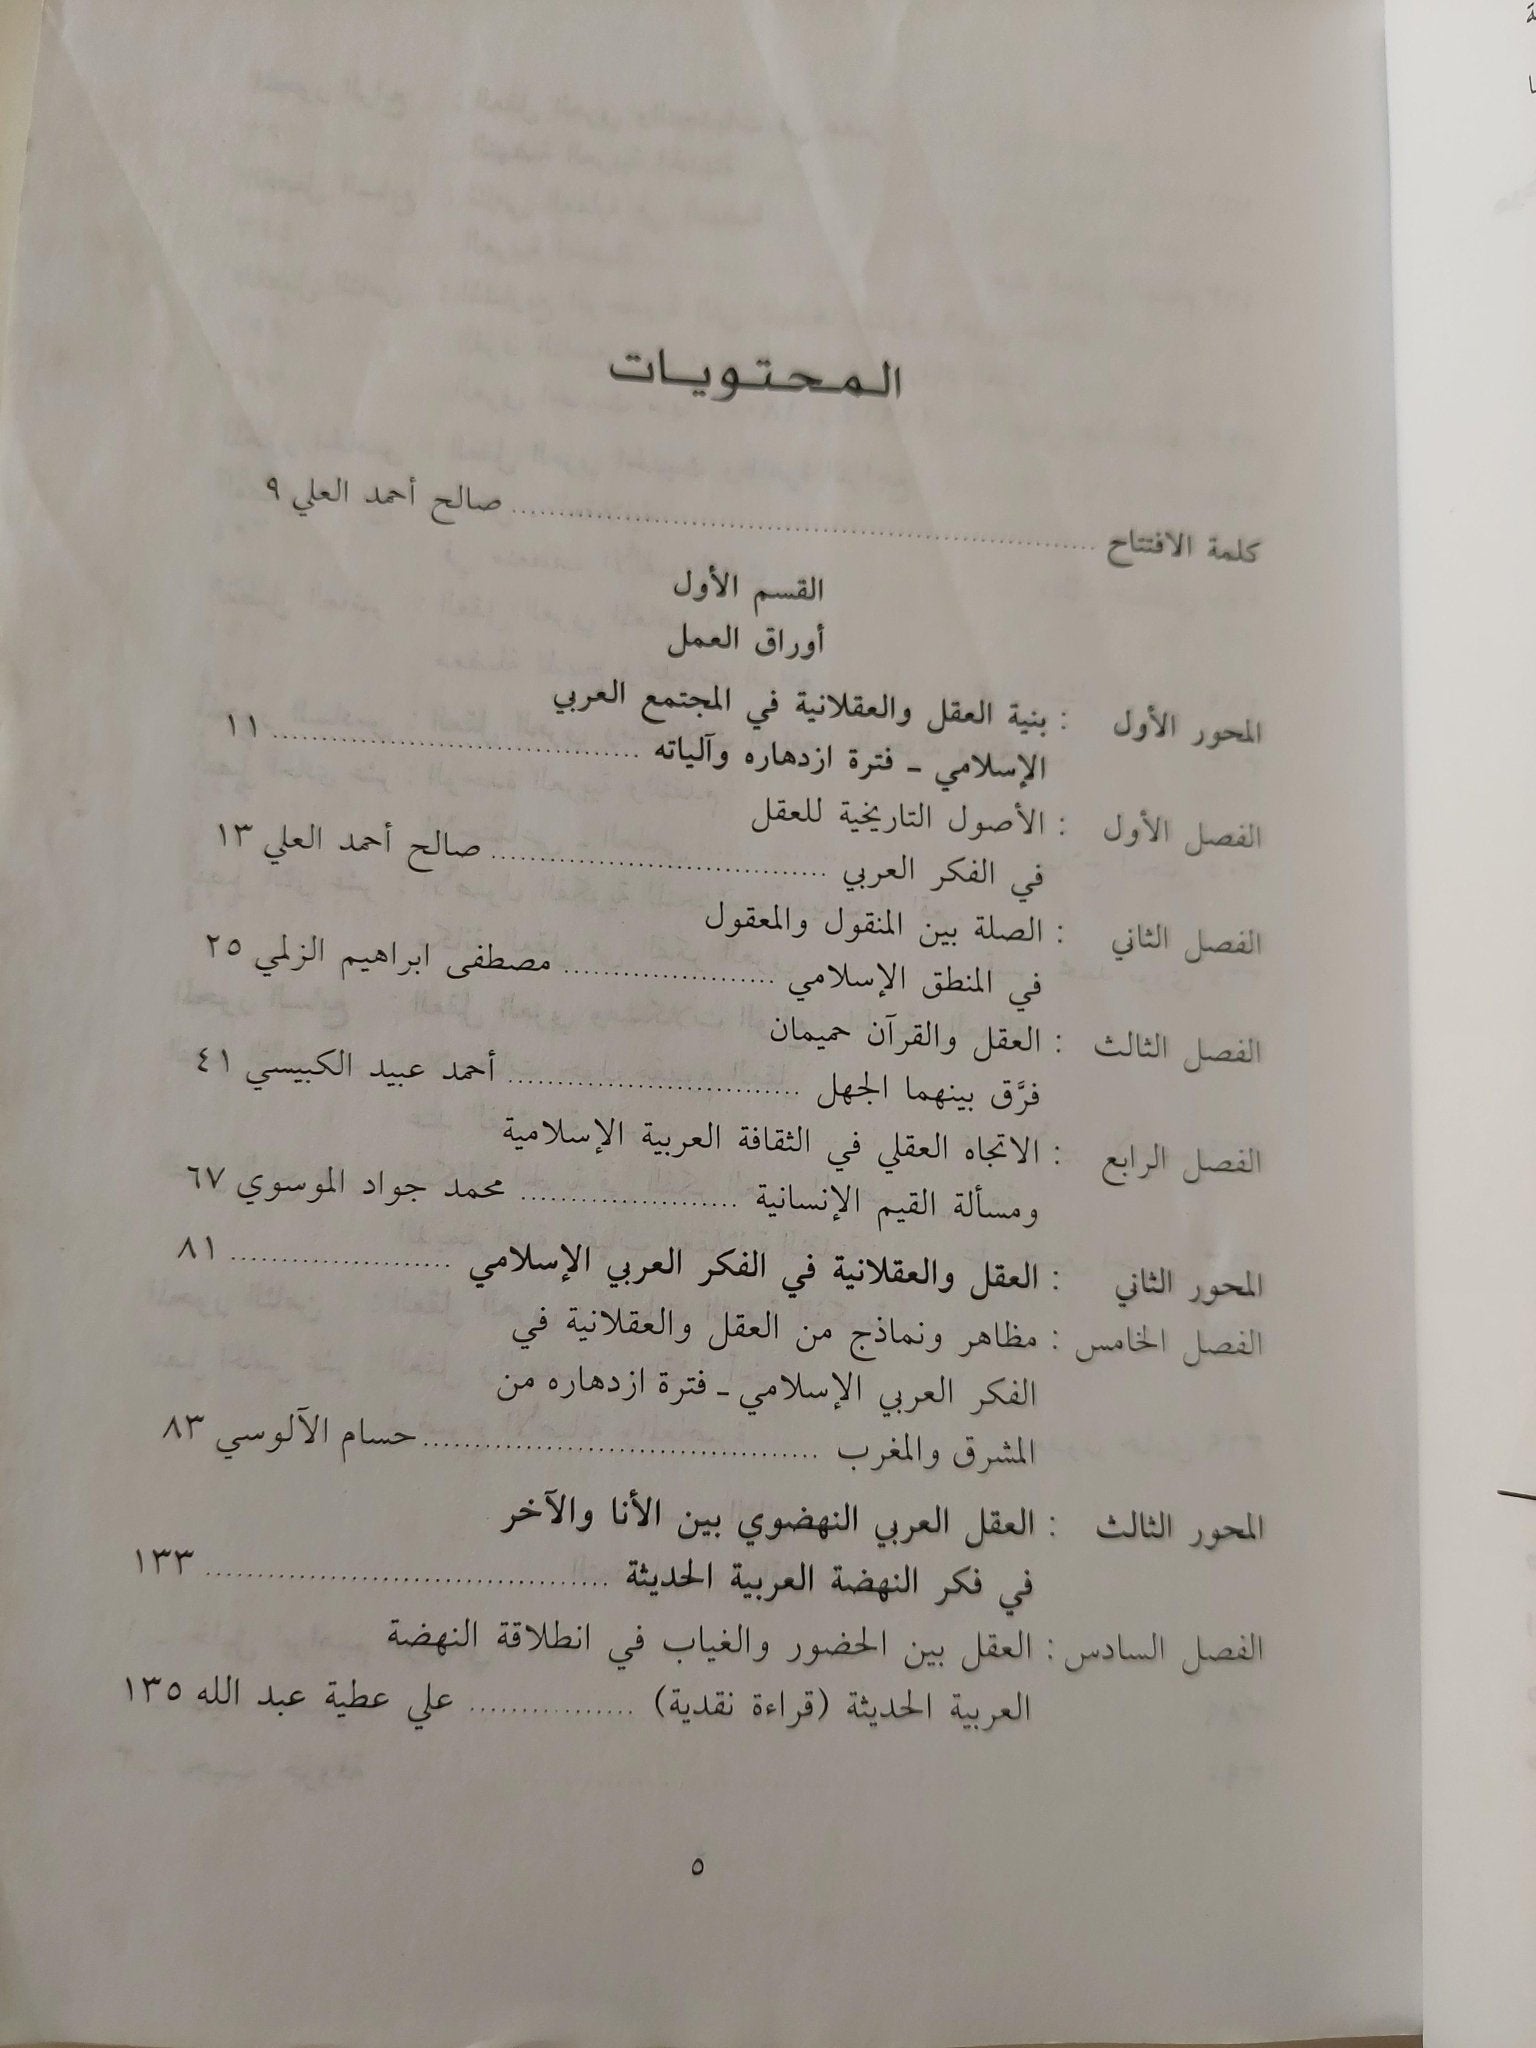 المحتويات
كلمة الافتتاح ........ صالح أحمد العلي ٩
القسم الأول
أوراق العمل
المحور الأول : بنية العقل والعقلانية في المجتمع العربي
الإسلامي ـ فترة ازدهاره وآلياته ........ ١١
الفصل الأول : الأصول التاريخية للعقل
في الفكر العربي ........ صالح أحمد العلي ١٣
الفصل الثاني : الصلة بين المنقول والمعقول
في المنطق الإسلامي ........ مصطفى ابراهيم الزلمي ٢٥
الفصل الثالث : العقل والقرآن حميمان
فرَّق بينهما الجهل ........ أحمد عبيد الكبيسي ٤١
الفصل الرابع : الاتجاه العقلي في الثقافة العربية الإسلامية
ومسألة القيم الإنسانية ........ محمد جواد الموسوي ٦٧
المحور الثاني : العقل والعقلانية في الفكر العربي الإسلامي ........ ٨١
الفصل الخامس : مظاهر ونماذج من العقل والعقلانية في
الفكر العربي الإسلامي ـ فترة ازدهاره من
المشرق والمغرب ........ حسام الآلوسي ٨٣
المحور الثالث : العقل العربي النهضوي بين الأنا والآخر
في فكر النهضة العربية الحديثة ........ ١٣٣
الفصل السادس : العقل بين الحضور والغياب في انطلاقة النهضة
العربية الحديثة (قراءة نقدية) ........ علي عطية عبد الله ١٣٥
٥